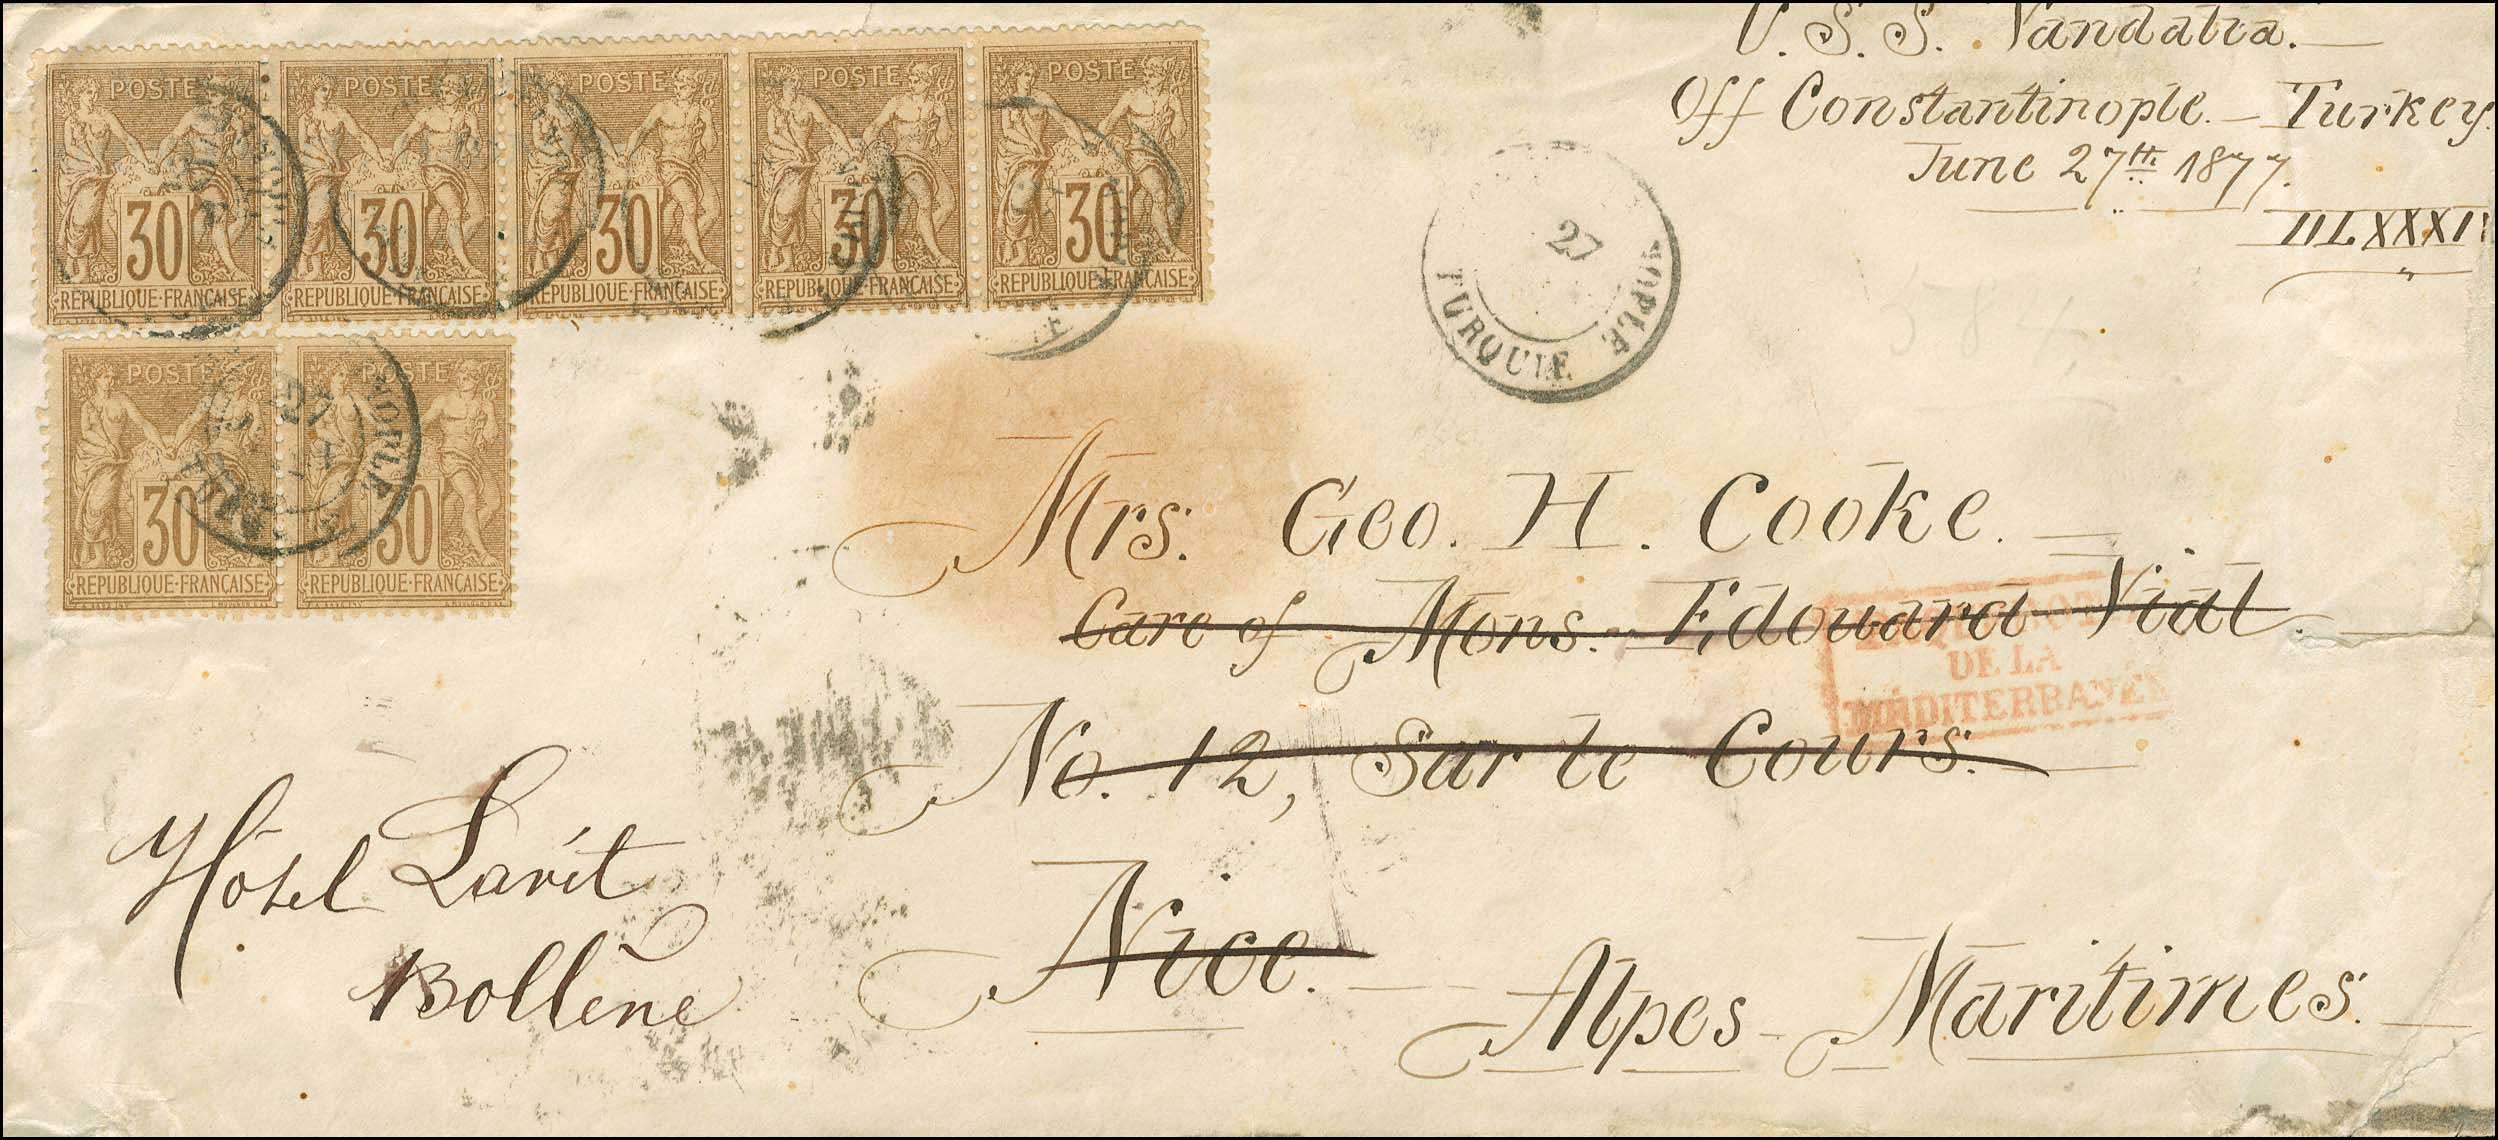 U.S.S. Vandalia.
Off Constantinople. - Turkey.
June 27th. 1877.
POSTE POSTE POSTE POSTE POSTE
30 30 30 30 30
REPUBLIQUE·FRANÇAISE REPUBLIQUE·FRANÇAISE REPUBLIQUE·FRANÇAISE REPUBLIQUE·FRANÇAISE REPUBLIQUE·FRANÇAISE
27
NOPLE
TURQUIE
POSTE POSTE
30 30
REPUBLIQUE·FRANÇAISE REPUBLIQUE·FRANÇAISE
27
NOPLE
Mrs. Geo. H. Cooke.
Care of Mons. Edouard Vial.
DE LA
MÉDITERRANÉE
No. 12, Sur le Cours.
Nice.
Alpes-Maritimes.
Hôtel Lavit
Bollène